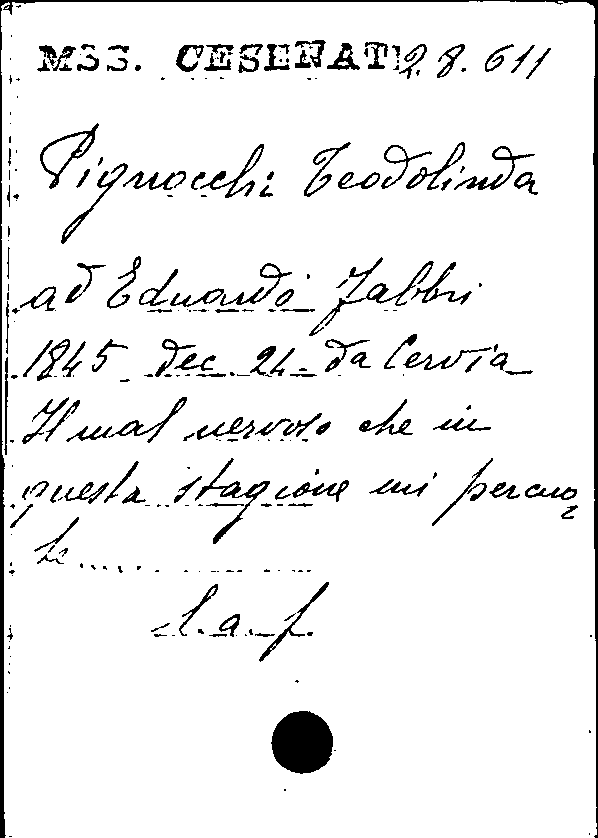 MSS. CESENATI 2.8.611
Pignocchi Teodolinda
ad Eduardo Fabbri
1845 dec. 24. da Cervia
Il mal nervoso che in
questa stagione mi percuo-
te.....
L.a.f.